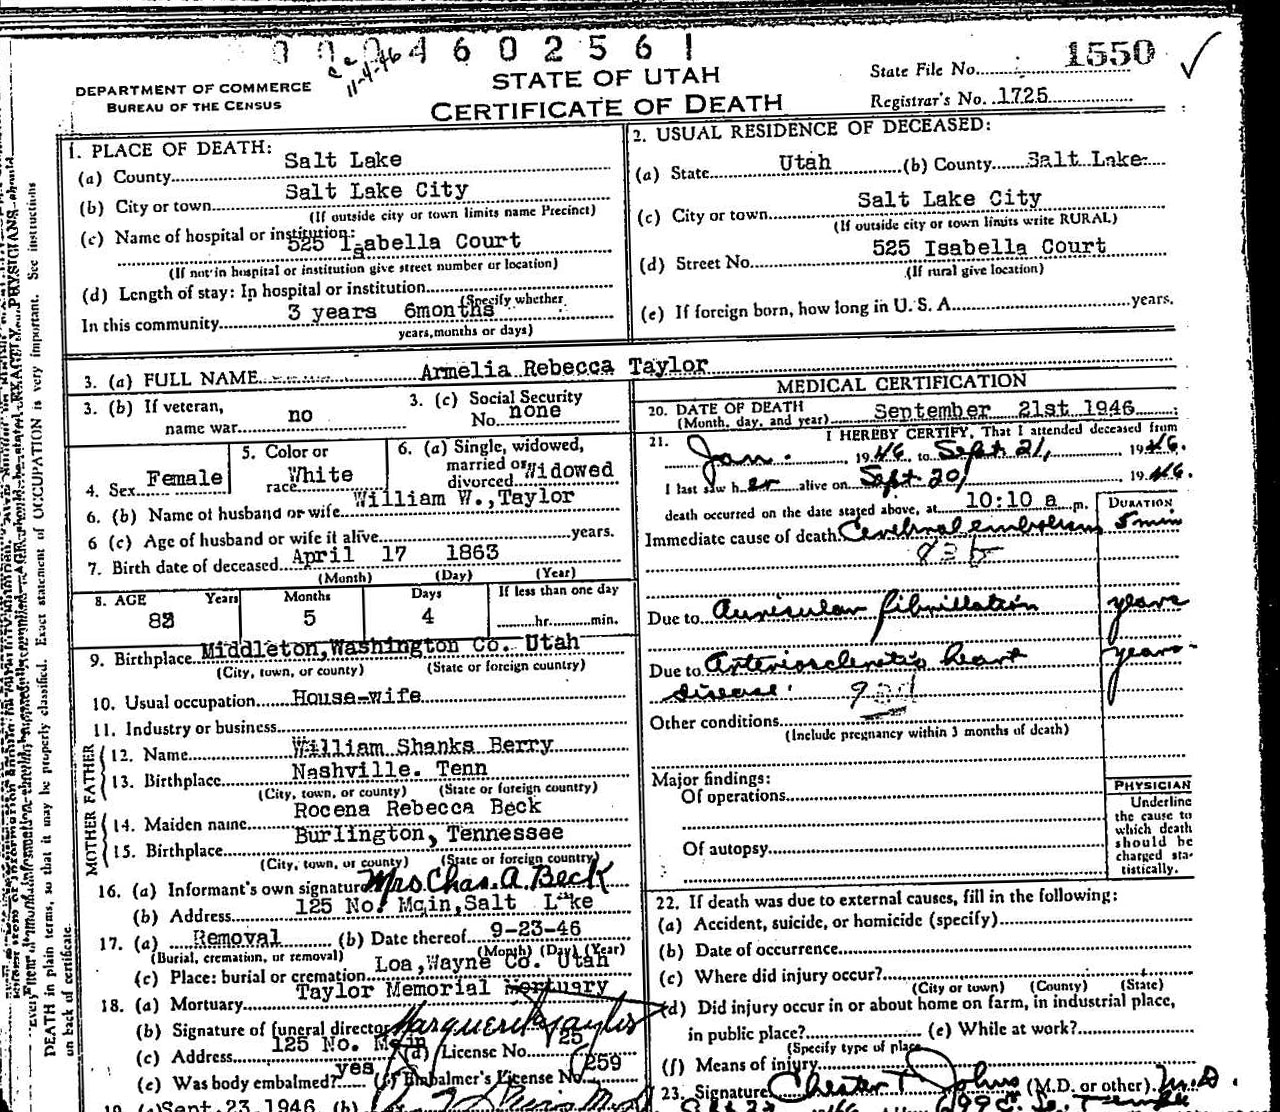 0 0 0 4 6 0 2 5 6 1
11-4-46
1550
DEPARTMENT OF COMMERCE
BUREAU OF THE CENSUS
STATE OF UTAH
CERTIFICATE OF DEATH
State File No.
Registrar's No. 1725
1. PLACE OF DEATH:
(a) County Salt Lake
(b) City or town Salt Lake City
(If outside city or town limits name Precinct)
(c) Name of hospital or institution:
525 Isabella Court
(If not in hospital or institution give street number or location)
(d) Length of stay: In hospital or institution
(Specify whether
In this community 3 years 6months
years, months or days)
2. USUAL RESIDENCE OF DECEASED:
(a) State Utah (b) County Salt Lake
(c) City or town Salt Lake City
(If outside city or town limits write RURAL)
(d) Street No. 525 Isabella Court
(If rural give location)
(e) If foreign born, how long in U. S. A. years.
3. (a) FULL NAME Armelia Rebecca Taylor
3. (b) If veteran,
name war no
3. (c) Social Security
No. none
4. Sex Female
5. Color or
race White
6. (a) Single, widowed,
married or
divorced Widowed
6. (b) Name of husband or wife William W., Taylor
6 (c) Age of husband or wife if alive years.
7. Birth date of deceased April 17 1863
(Month) (Day) (Year)
8. AGE Years Months Days If less than one day
83 5 4 hr. min.
9. Birthplace Middleton, Washington Co. Utah
(City, town, or county) (State or foreign country)
10. Usual occupation House-wife
11. Industry or business
FATHER
12. Name William Shanks Berry
13. Birthplace Nashville. Tenn
(City, town, or county) (State or foreign country)
MOTHER
14. Maiden name Rocena Rebecca Beck
15. Birthplace Burlington, Tennessee
(City, town, or county) (State or foreign country)
16. (a) Informant's own signature Mrs Chas. A. Beck
(b) Address 125 No. Main, Salt Lake
17. (a) Removal (b) Date thereof 9-23-46
(Burial, cremation, or removal) (Month) (Day) (Year)
(c) Place: burial or cremation Loa, Wayne Co. Utah
18. (a) Mortuary Taylor Memorial Mortuary
(b) Signature of funeral director Marguerite Taylor
(c) Address 125 No. Main (d) License No. 25
(e) Was body embalmed? yes (f) Embalmer's License No. 259
19. (a) Sept. 23, 1946 (b)
MEDICAL CERTIFICATION
20. DATE OF DEATH
(Month, day, and year) September 21st 1946
21. I HEREBY CERTIFY, That I attended deceased from
Jan. 1946, to Sept 21, 1946.
I last saw her alive on Sept 20, 1946.
death occurred on the date stated above, at 10:10 a m.
DURATION
Immediate cause of death Cerebral embolism 5 min
83b
Due to Auricular fibrillation years
Due to Arteriosclerotic heart years
disease.
Other conditions
(Include pregnancy within 3 months of death)
Major findings:
Of operations
Of autopsy
PHYSICIAN
Underline
the cause to
which death
should be
charged sta-
tistically.
22. If death was due to external causes, fill in the following:
(a) Accident, suicide, or homicide (specify)
(b) Date of occurrence
(c) Where did injury occur?
(City or town) (County) (State)
(d) Did injury occur in or about home on farm, in industrial place,
in public place? (e) While at work?
(Specify type of place
(f) Means of injury
23. Signature Chester T. Johns (M.D. or other) M.D.
DEATH in plain terms, so that it may be properly classified. Exact statement of OCCUPATION is very important. See instructions
on back of certificate.